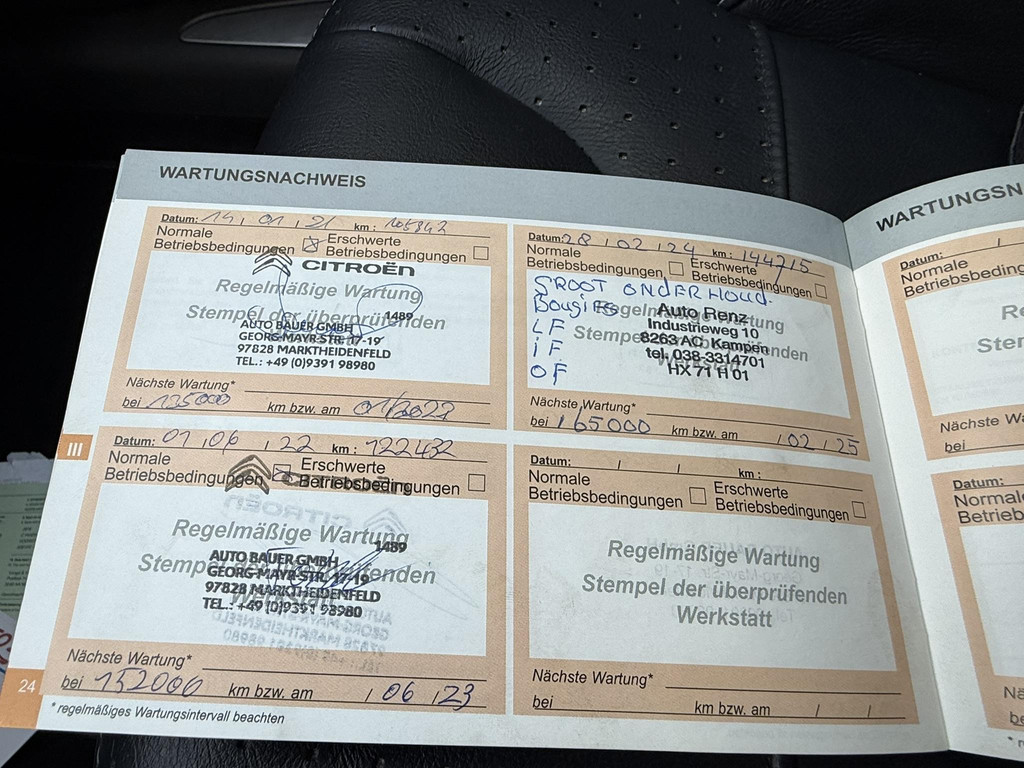 WARTUNGSNACHWEIS
Datum: 14, 01, 21 km: 105842
Normale Betriebsbedingungen ☒ Erschwerte Betriebsbedingungen ☐
CITROËN
Regelmäßige Wartung
Stempel der überprüfenden
1489
AUTO BAUER GMBH
GEORG-MAYR-STR. 17-19
97828 MARKTHEIDENFELD
TEL.: +49 (0)9391 98980
Nächste Wartung*
bei 135000 km bzw. am 01/2023
III
Datum: 01, 06, 22 km: 122432
Normale Betriebsbedingungen ☒ Erschwerte Betriebsbedingungen ☐
Regelmäßige Wartung
Stempel der überprüfenden
Werkstatt
1489
AUTO BAUER GMBH
GEORG-MAYR-STR. 17-19
97828 MARKTHEIDENFELD
TEL.: +49 (0)9391 98980
Nächste Wartung*
bei 152000 km bzw. am / 06, 23
24
* regelmäßiges Wartungsintervall beachten
Datum: 28, 02, 24 km: 144715
Normale Betriebsbedingungen ☐ Erschwerte Betriebsbedingungen ☐
GROOT ONDERHOUD
Bougies
LF
iF
OF
Regelmäßige Wartung
Stempel der überprüfenden
Werkstatt
Auto Renz
Industrieweg 10
8263 AC Kampen
tel. 038-3314701
HX 71 H 01
Nächste Wartung*
bei 165000 km bzw. am / 02, 25
Datum: / / km:
Normale Betriebsbedingungen ☐ Erschwerte Betriebsbedingungen ☐
Regelmäßige Wartung
Stempel der überprüfenden
Werkstatt
Nächste Wartung*
bei km bzw. am / /
WARTUNGSN
Datum: /
Normale
Betriebsbeding
Re
Stem
Nächste W
bei
Datum:
Normale
Betriebsb
Nä
be
* re